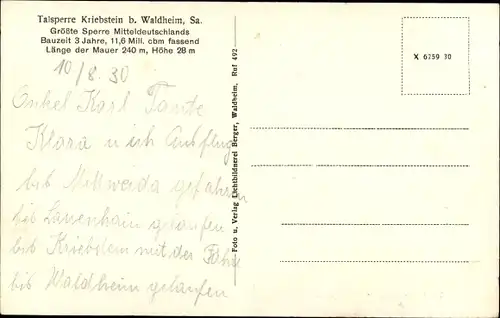 Talsperre Kriebstein b. Waldheim, Sa.
Größte Sperre Mitteldeutschlands
Bauzeit 3 Jahre, 11,6 Mill. cbm fassend
Länge der Mauer 240 m, Höhe 28 m
10/8.30
Onkel Karl Tante
Klara u ich Ausflug
bis Mittweida gefahren
bis Lauenhain gelaufen
bis Kriebstein mit der Fähre
bis Waldheim gelaufen
Foto u. Verlag Lichtbildnerei Berger, Waldheim, Ruf 492
X 6759 30